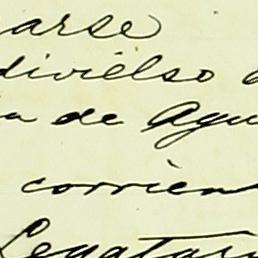 arse
divielso
a de Agu
corrien
Legatari